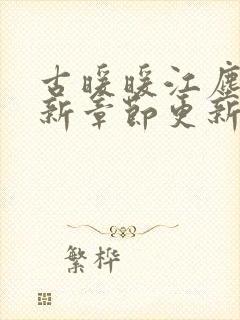 古暖暖江塵
新章節更新
繁桦